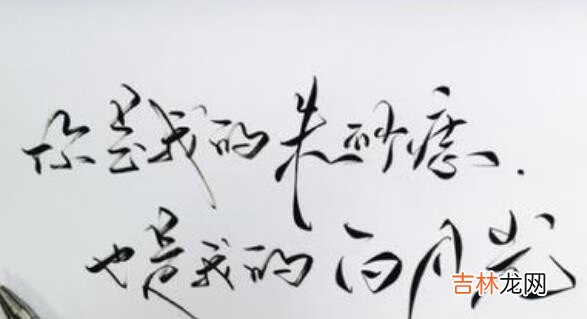 你是我的朱砂痣.
也是我的白月光
吉林龙网